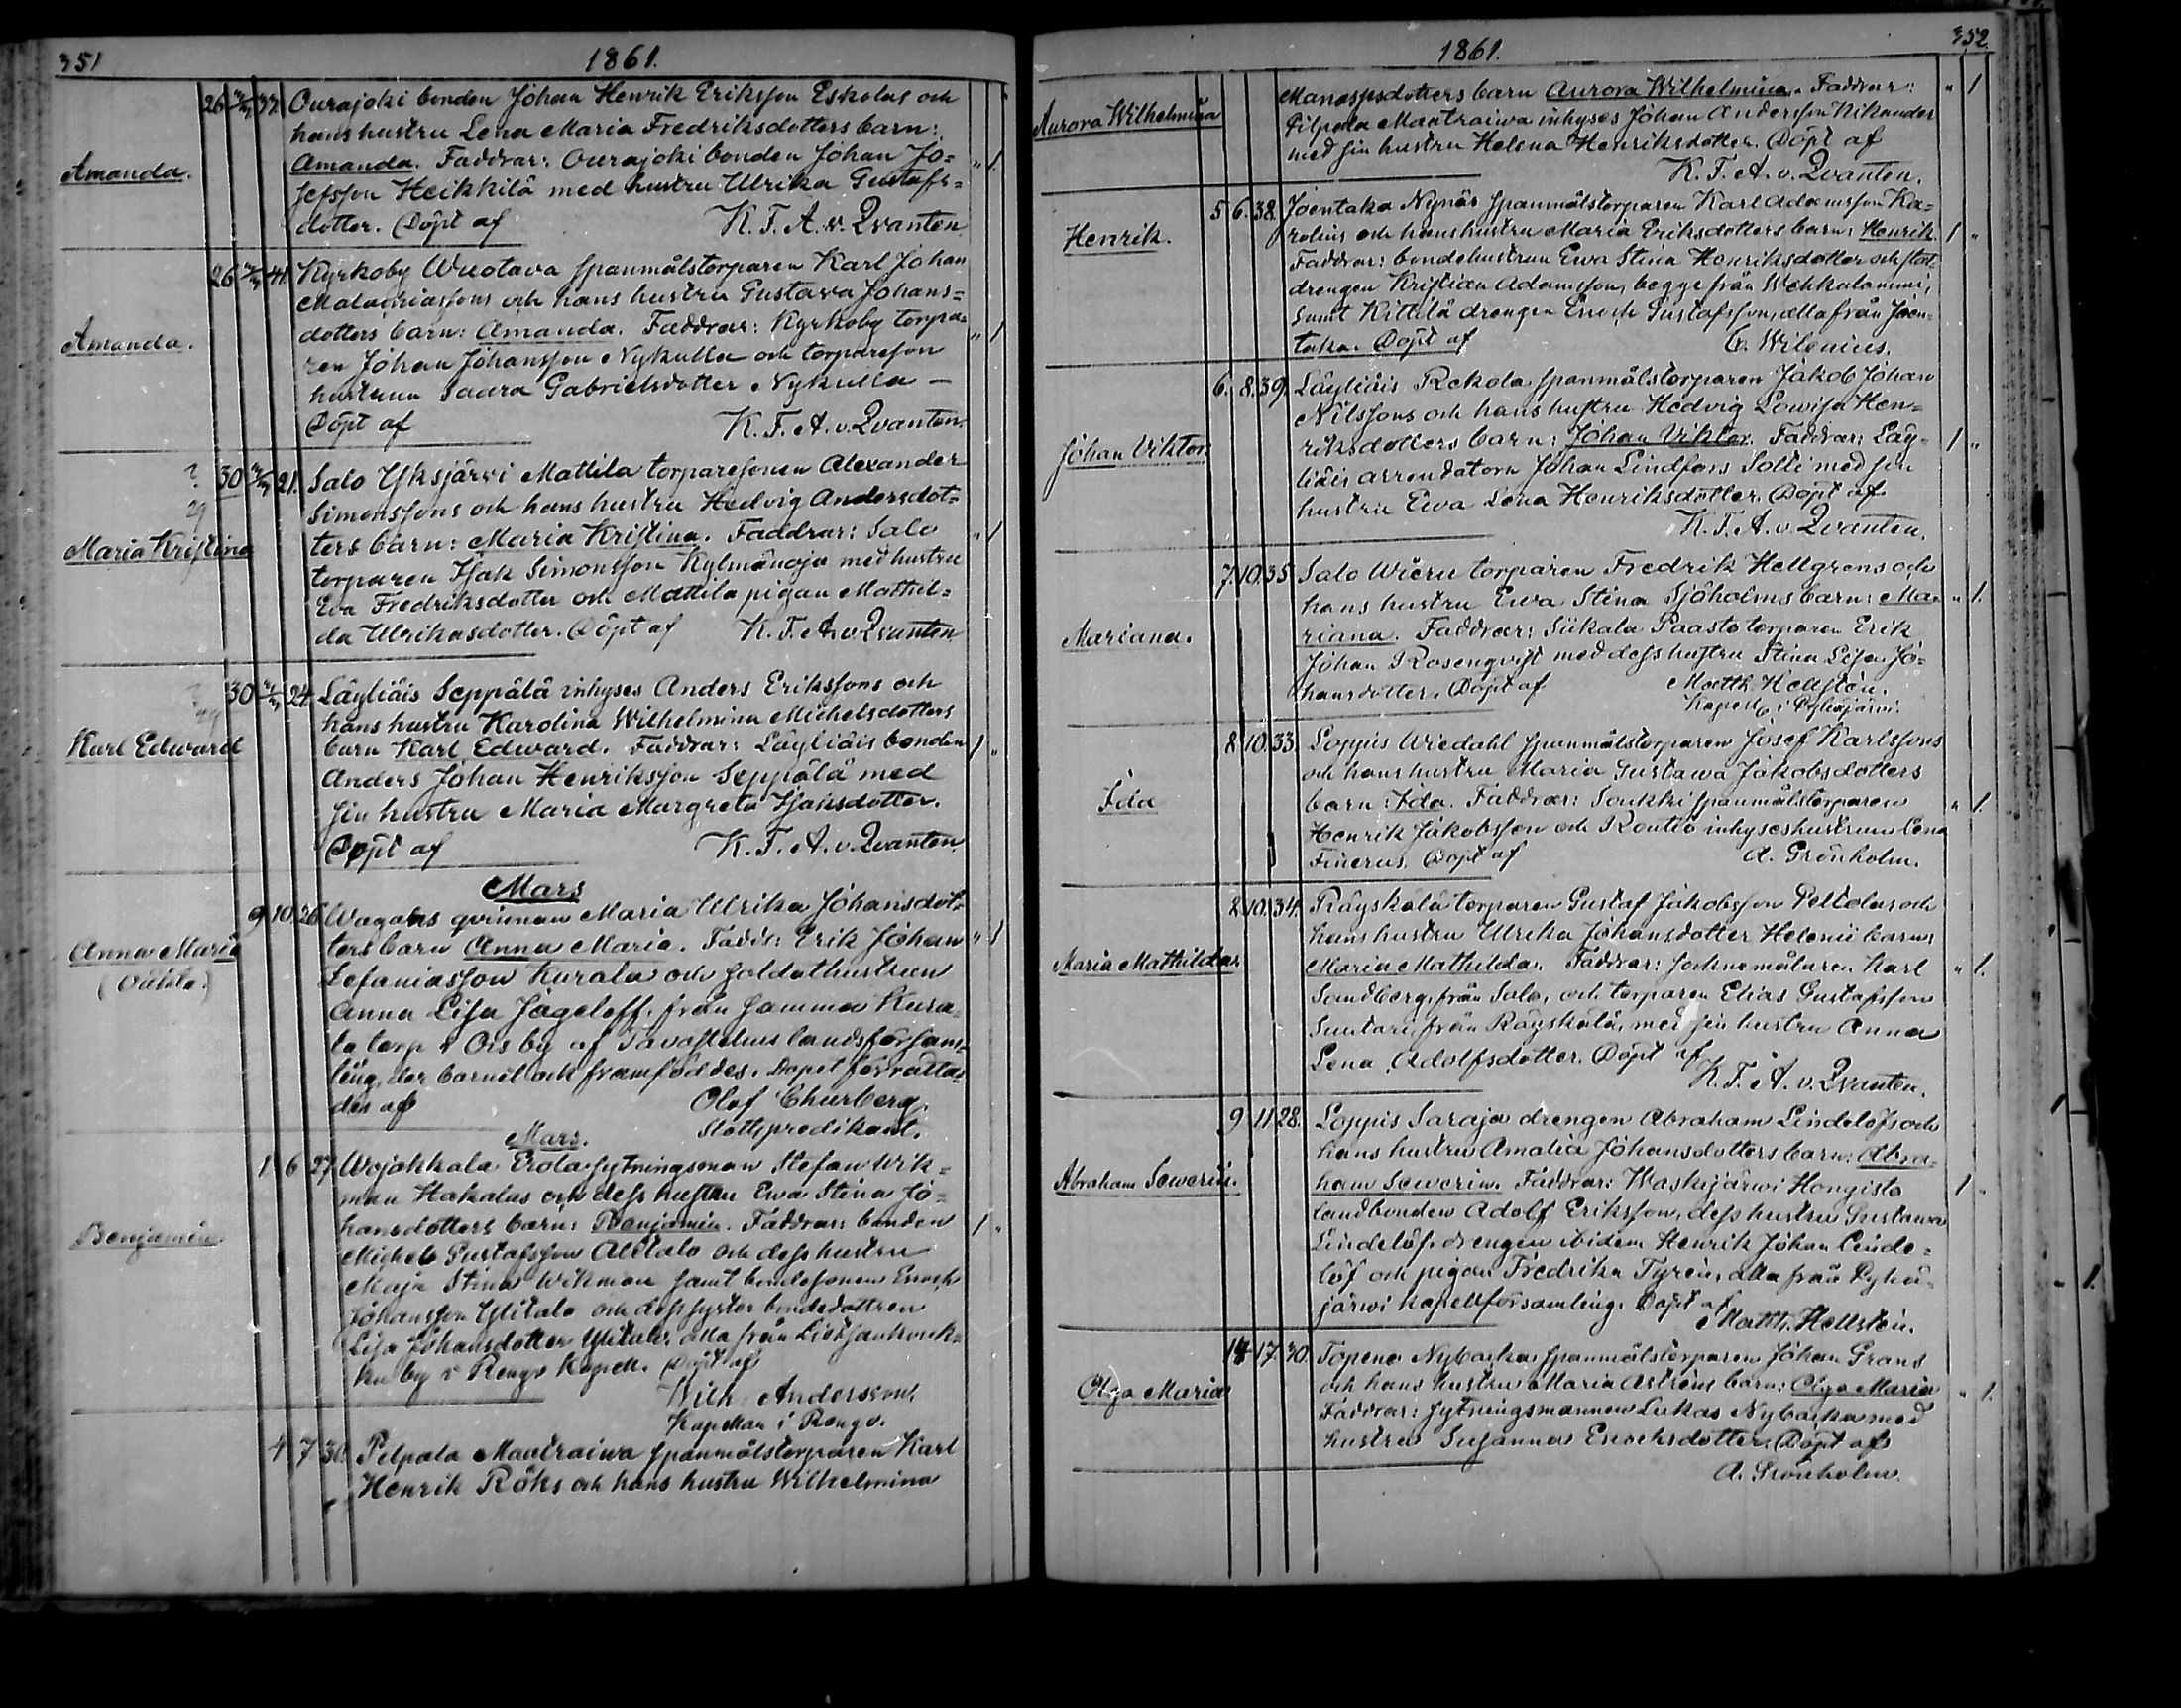 351
1861.
26 37. Ourajoki bonden Johan Henrik Eriksson Eskolas och
hans hustru Lena Maria Fredriksdotters barn:
Amanda.
Amanda. Faddrar: Ourajoki bonden Johan Jo= " 1.
sefsson Heikkilä med hustru Ulrika Gustafs=
dotter. Döpt af K. F. A. v. Qvanten
26 41. Kyrkoby Wuotava spanmålstorparen Karl Johan
Malachiassons och hans hustru Gustava Johans=
Amanda.
dotters barn: Amanda. Faddrar: Kyrkoby torpa= " 1
ren Johan Johansson Nykulla och torpareson
hustrun Laura Gabrielsdotter Nykulla —
Döpt af K. F. A. v. Qvanten.
? 30 21. Salo Yksjärvi Mattila torparesonen Alexander
29 Simonssons och hans hustru Hedvig Andersdot=
Maria Kristina
ters barn: Maria Kristina. Faddrar: Salo " 1
torparen Isak Simonsson Kylmänoja med hustru
Eva Fredriksdotter och Mattila pigan Mathil=
da Ulrikasdotter. Döpt af K. F. A. v. Qvanten
? 30 24. Läyliäis Seppälä inhyses Anders Erikssons och
hans hustru Karolina Wilhelmina Michelsdotters
Karl Edward
barn Karl Edward. Faddrar: Läyliäis bonden 1 "
Anders Johan Henriksson Seppälä med
sin hustru Maria Margreta Isaksdotter.
Döpt af K. F. A. v. Qvanten.
Mars
9 10. 26 qvinnan Maria Ulrika Johansdot=
Anna Maria
ters barn Anna Maria. Fadd: Erik Johan " 1
Zefaniasson Kurala och soldathustrun
Anna Lisa Jägeloff. från samma Kura=
la torp i Ois by af Tavastehus landsförsam=
ling, der barnet och framföddes. Dopet förrätta=
des af Olof Churberg.
Slottspredikant.
Mars.
1 6 27 Wojakkala Erola sytningsman Stefan Wik=
man Hakalas och dess hustru Ewa Stina Jo=
Benjamin
hansdotters barn: Benjamin. Faddrar: bonden 1 "
Michel Gustafsson Alitalo och dess hustru
Maja Stina Wikman samt bondesonen Enoch
Johansson Ylitalo och dess syster bondedottren
Lisa Johansdotter Ylitalo, alla från
by i Rengo Kapell. Döpt af
Wilh. Andersson,
Kapellan i Rengo.
4 7 30. Pilpala Maatraiwa spanmålstorparen Karl
Henrik Röks och hans hustru Wilhelmina
352.
1861.
Aurora Wilhelmina
Manassesdotters barn Aurora Wilhelmina. Faddrar: " 1
Pilpala Maatraiwa inhyses Johan Andersson Nikander
med sin hustru Helena Henriksdotter. Döpt af
K. F. A. v. Qvanten.
5 6. 38. Joentaka Nynäs spanmålstorparen Karl Adamsson Ka=
Henrik.
rolius och hans hustru Maria Eriksdotters barn: Henrik. 1 "
Faddrar: bondehustrun Ewa Stina Henriksdotter och stat=
drengen Kristian Adamsson, begge från Wehkalammi,
samt Kittilä drengen Enoch Gustafsson, alla från Joen=
taka. Döpt af G. Wilenius.
6. 8. 39. Läyliäis Rekola spanmålstorparen Jakob Johan
Nilssons och hans hustru Hedvig Lowisa Hen=
Johan Viktor.
riksdotters barn: Johan Viktor. Faddrar: Läy= 1 "
liäis arrendatorn Johan Lindfors Solti med sin
hustru Ewa Lena Henriksdotter. Döpt af
K. F. A. v. Qvanten.
7. 10. 35. Salo Wieru torparen Fredrik Hellgrens och
hans hustru Ewa Stina Sjöholms barn: Ma= " 1.
Mariana.
riana. Faddrar: Siikala Paasto torparen Erik
Johan Rosenqvist med dess hustru Stina Lisa Jo=
hansdotter. Döpt af Matth. Hellstén.
Kapell. i Pyhäjärvi.
8 10. 33. Loppis Wiedahl spanmålstorparen Josef Karlssons
och hans hustru Maria Gustawa Jakobsdotters
Ida
barn: Ida. Faddrar: Soukki spanmålstorparen " 1.
Henrik Jakobsson och Rontio inhyseshustrun Lena
Finerus. Döpt af A. Grönholm.
8. 10. 34. Räyskälä torparen Gustaf Jakobsson Peltolas och
hans hustru Ulrika Johansdotter Helenii barn:
Maria Mathilda.
Maria Mathilda. Faddrar: socknemålaren Karl " 1.
Sandberg, från Salo, och torparen Elias Gustafsson
Suutari, från Räyskälä, med sin hustru Anna
Lena Adolfsdotter. Döpt af
K. F. A. v. Qvanten.
9 11 28. Loppis Saraja drengen Abraham Lindelöfs och
hans hustru Amalia Johansdotters barn: Abra=
Abraham Sewerin.
ham Sewerin. Faddrar: Waskijärwi Hongisto 1 "
landbonden Adolf Eriksson, dess hustru Gustawa
Lindelöf, drengen ibidem Henrik Johan Linde=
löf och pigan Fredrika Tyrén, alla från Pyhä=
järwi kapellförsamling. Döpt af
Matth. Hellstén.
14 17. 30. Topeno Nybacka spanmålstorparen Johan Grans
och hans hustru Maria Astréns barn: Olga Maria " 1.
Olga Maria
Faddrar: sytningsmannen Lukas Nybacka med
hustru Susanna Enochsdotter. Döpt af
A. Grönholm.